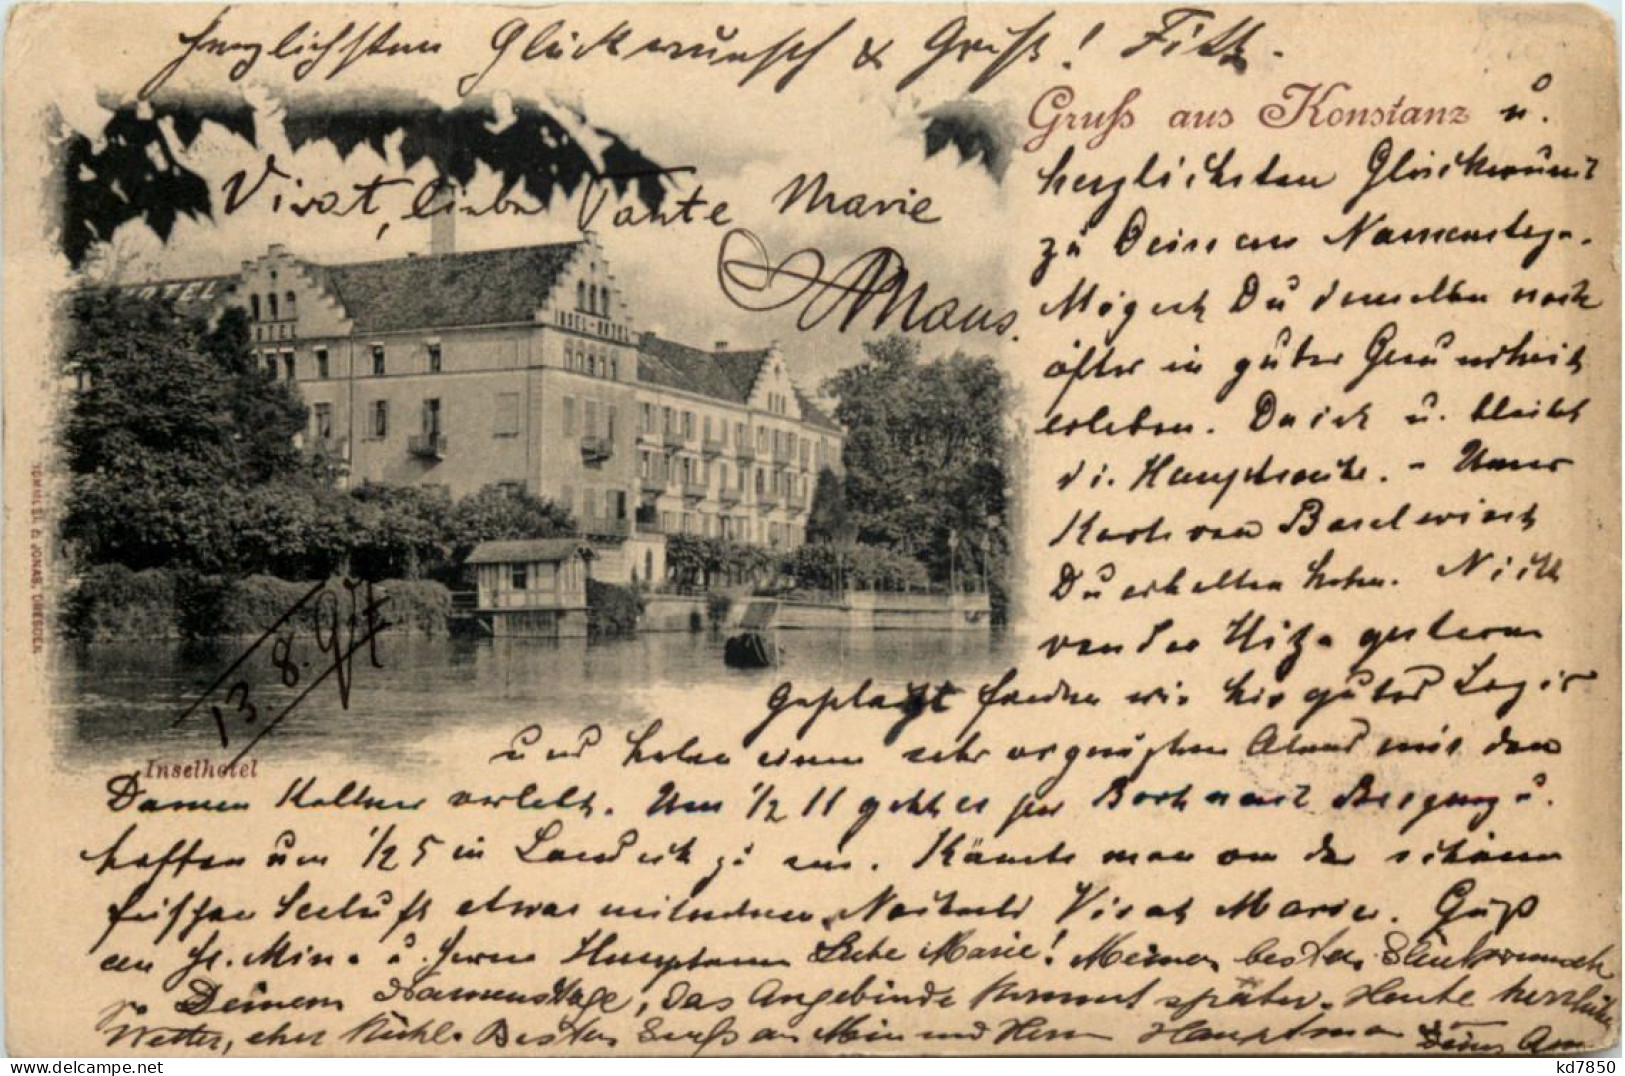 herzlichsten Glückwunsch & Gruß! Fitz.
Gruß aus Konstanz u.
Vivat, liebe Tante Marie
Maus.
herzlichsten Glückwunsch
zu Deinem Namenstage.
Mögest Du denselben noch
öfter in guter Gesundheit
erleben. Da ist u. bleibt
di. Hauptsache. - Unsere
Karte von Basel wirst
Du erhalten haben. Nicht
von der Hitze gestern
geplagt fanden wir hier gutes Logis
und haben einen sehr vergnügten Abend mit den
13.8.97
HOTEL
INSEL-HOTEL
Inselhotel
Damen Kellner verlebt. Um ½ 11 geht es per Boot nach Bregenz u.
hoffen um ½ 5 in Landeck zu sein. Könnte man von der schönen
frischen Seeluft etwas mitnehmen. Nochmals Vivat Marie. Gruß
an Fr. Mina u. Herrn Hauptmann Liebe Marie! Meinen besten Glückwunsch
zu Deinem Namenstage, das Angebinde kommt später. Heute herrliches
Wetter, eher kühl. Besten Gruß an Mina und Herrn Hauptman Deine
ROMMLER & JONAS, DRESDEN.
kd7850